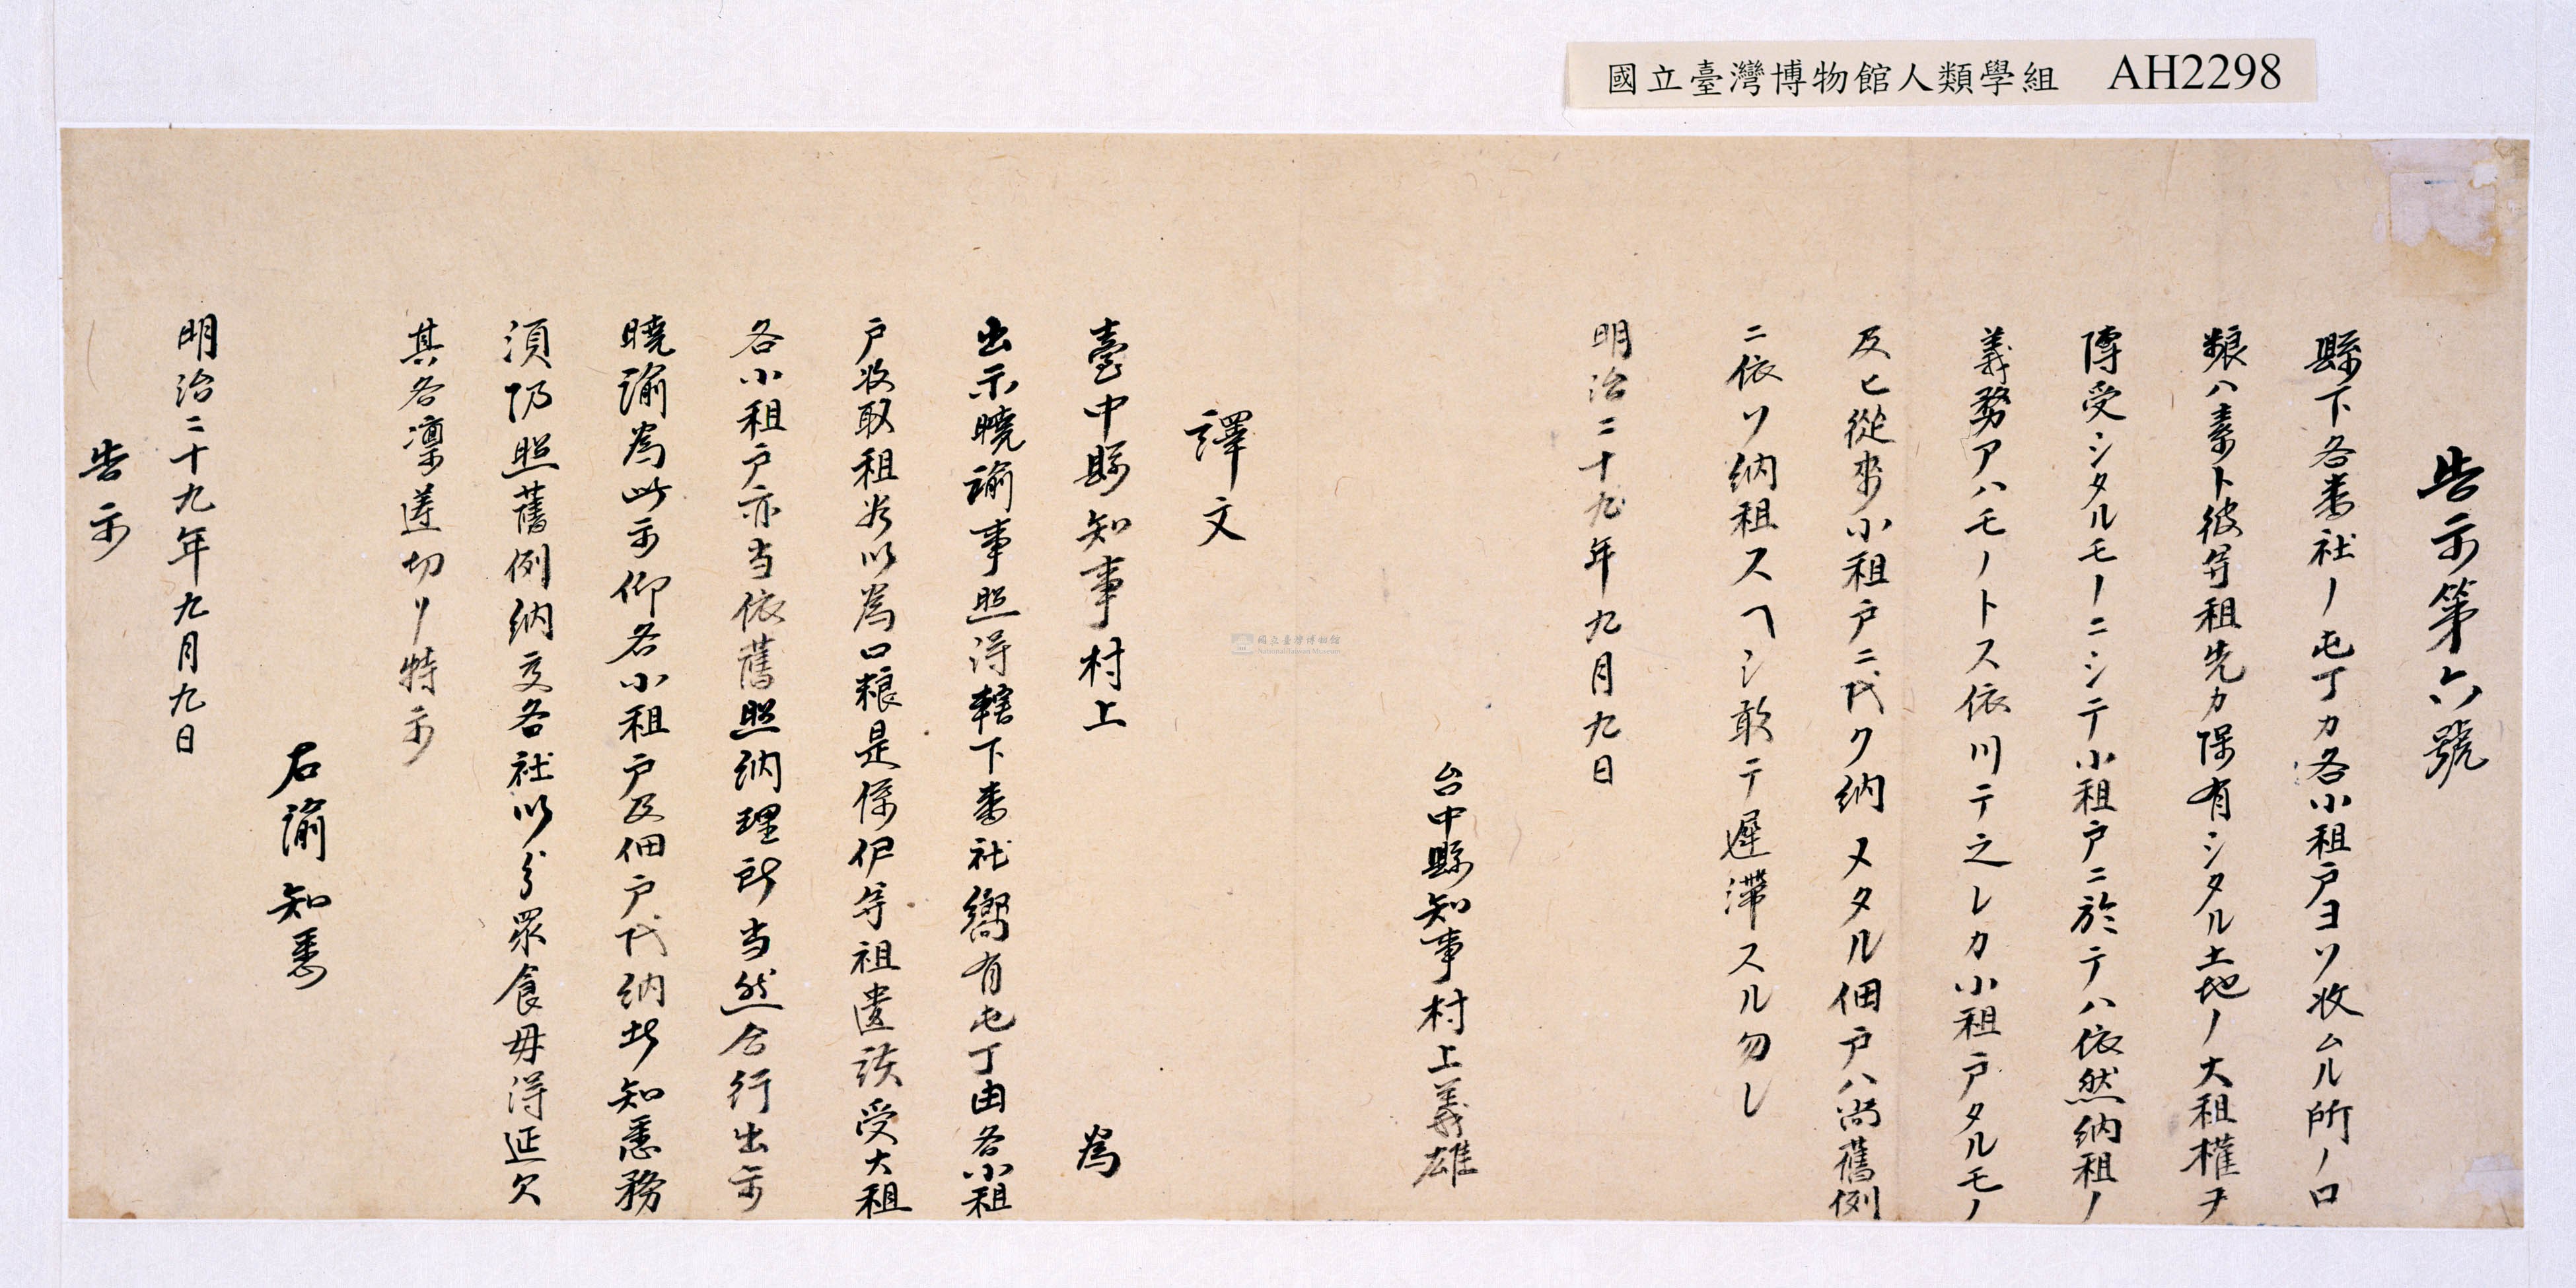 國立臺灣博物館人類學組 AH2298
告示第六號
縣下各番社ノ屯丁カ各小租戸ヨリ收ムル所ノ口
粮ハ素ト彼等祖先カ保有シタル土地ノ大租權ヲ
傳受シタルモノニシテ小租戸ニ於テハ依然納租ノ
義務アハモノトス依川テ之レカ小租戸タルモノ
及ヒ從來小租戸ニ代ク納メタル佃戸ハ尚舊例
ニ依リ納租スヘシ敢テ遲滯スル勿レ
明治二十九年九月九日
台中縣知事村上義雄
譯文
臺中縣知事村上 為
出示曉諭事照得轄下番社嚮有屯丁由各小租
戸收取租谷以為口粮是係伊等祖遺該受大租
各小租戸亦当依舊照納理所当然合行出示
曉諭為此示仰各小租戸及佃戸代納者知悉務
須仍照舊例納交各社以分眾食毋得延欠
其各凜遵切リ特示
右諭知悉
明治二十九年九月九日
告示
國立臺灣博物館
National Taiwan Museum